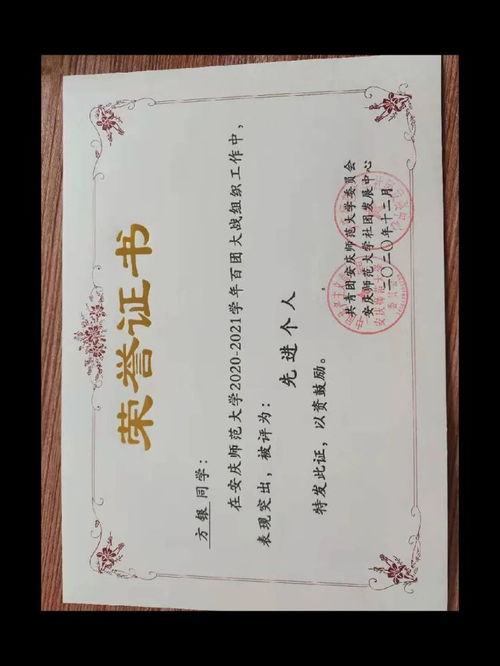 荣誉证书
方银同学：
在安庆师范大学2020-2021学年百团大战组织工作中，
表现突出，被评为：
先进个人
特发此证，以资鼓励。
共青团安庆师范大学委员会
安庆师范大学社团发展中心
二〇二〇年十二月